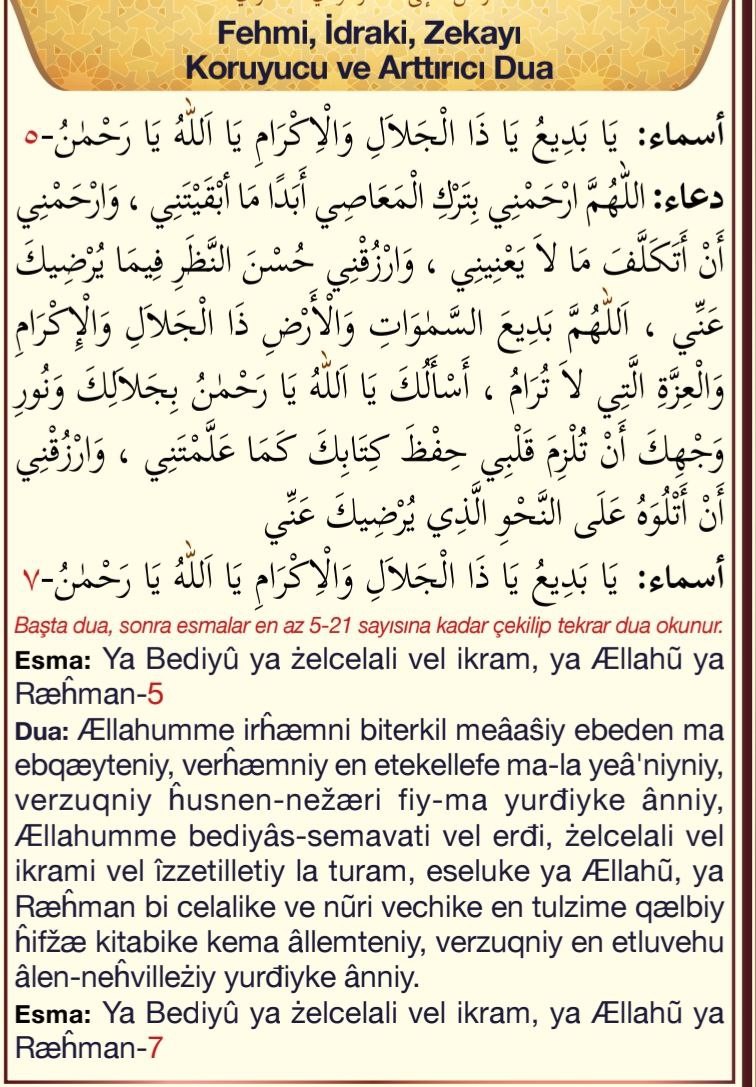 Fehmi, İdraki, Zekayı
Koruyucu ve Arttırıcı Dua
أسماء: يَا بَدِيعُ يَا ذَا الْجَلَالِ وَالْاِكْرَامِ يَا اَللّٰهُ يَا رَحْمٰنُ-٥
دعاء: اللّٰهُمَّ ارْحَمْنِي بِتَرْكِ الْمَعَاصِي أَبَدًا مَا أَبْقَيْتَنِي ، وَارْحَمْنِي
أَنْ أَتَكَلَّفَ مَا لَا يَعْنِينِي ، وَارْزُقْنِي حُسْنَ النَّظَرِ فِيمَا يُرْضِيكَ
عَنِّي ، اَللّٰهُمَّ بَدِيعَ السَّمٰوَاتِ وَالْأَرْضِ ذَا الْجَلَالِ وَالْإِكْرَامِ
وَالْعِزَّةِ الَّتِي لَا تُرَامُ ، أَسْأَلُكَ يَا اَللّٰهُ يَا رَحْمٰنُ بِجَلَالِكَ وَنُورِ
وَجْهِكَ أَنْ تُلْزِمَ قَلْبِي حِفْظَ كِتَابِكَ كَمَا عَلَّمْتَنِي ، وَارْزُقْنِي
أَنْ أَتْلُوَهُ عَلَى النَّحْوِ الَّذِي يُرْضِيكَ عَنِّي
أسماء: يَا بَدِيعُ يَا ذَا الْجَلَالِ وَالْاِكْرَامِ يَا اَللّٰهُ يَا رَحْمٰنُ-٧
Başta dua, sonra esmalar en az 5-21 sayısına kadar çekilip tekrar dua okunur.
Esma: Ya Bediyû ya żelcelali vel ikram, ya Ællahũ ya
Ræĥman-5
Dua: Ællahumme irĥæmni biterkil meâaŝiy ebeden ma
ebqæyteniy, verĥæmniy en etekellefe ma-la yeâ'niyniy,
verzuqniy ĥusnen-nežæri fiy-ma yurđiyke ânniy,
Ællahumme bediyâs-semavati vel erđi, żelcelali vel
ikrami vel îzzetilletiy la turam, eseluke ya Ællahũ, ya
Ræĥman bi celalike ve nũri vechike en tulzime qælbiy
ĥifžæ kitabike kema âllemteniy, verzuqniy en etluvehu
âlen-neĥvilleżiy yurđiyke ânniy.
Esma: Ya Bediyû ya żelcelali vel ikram, ya Ællahũ ya
Ræĥman-7